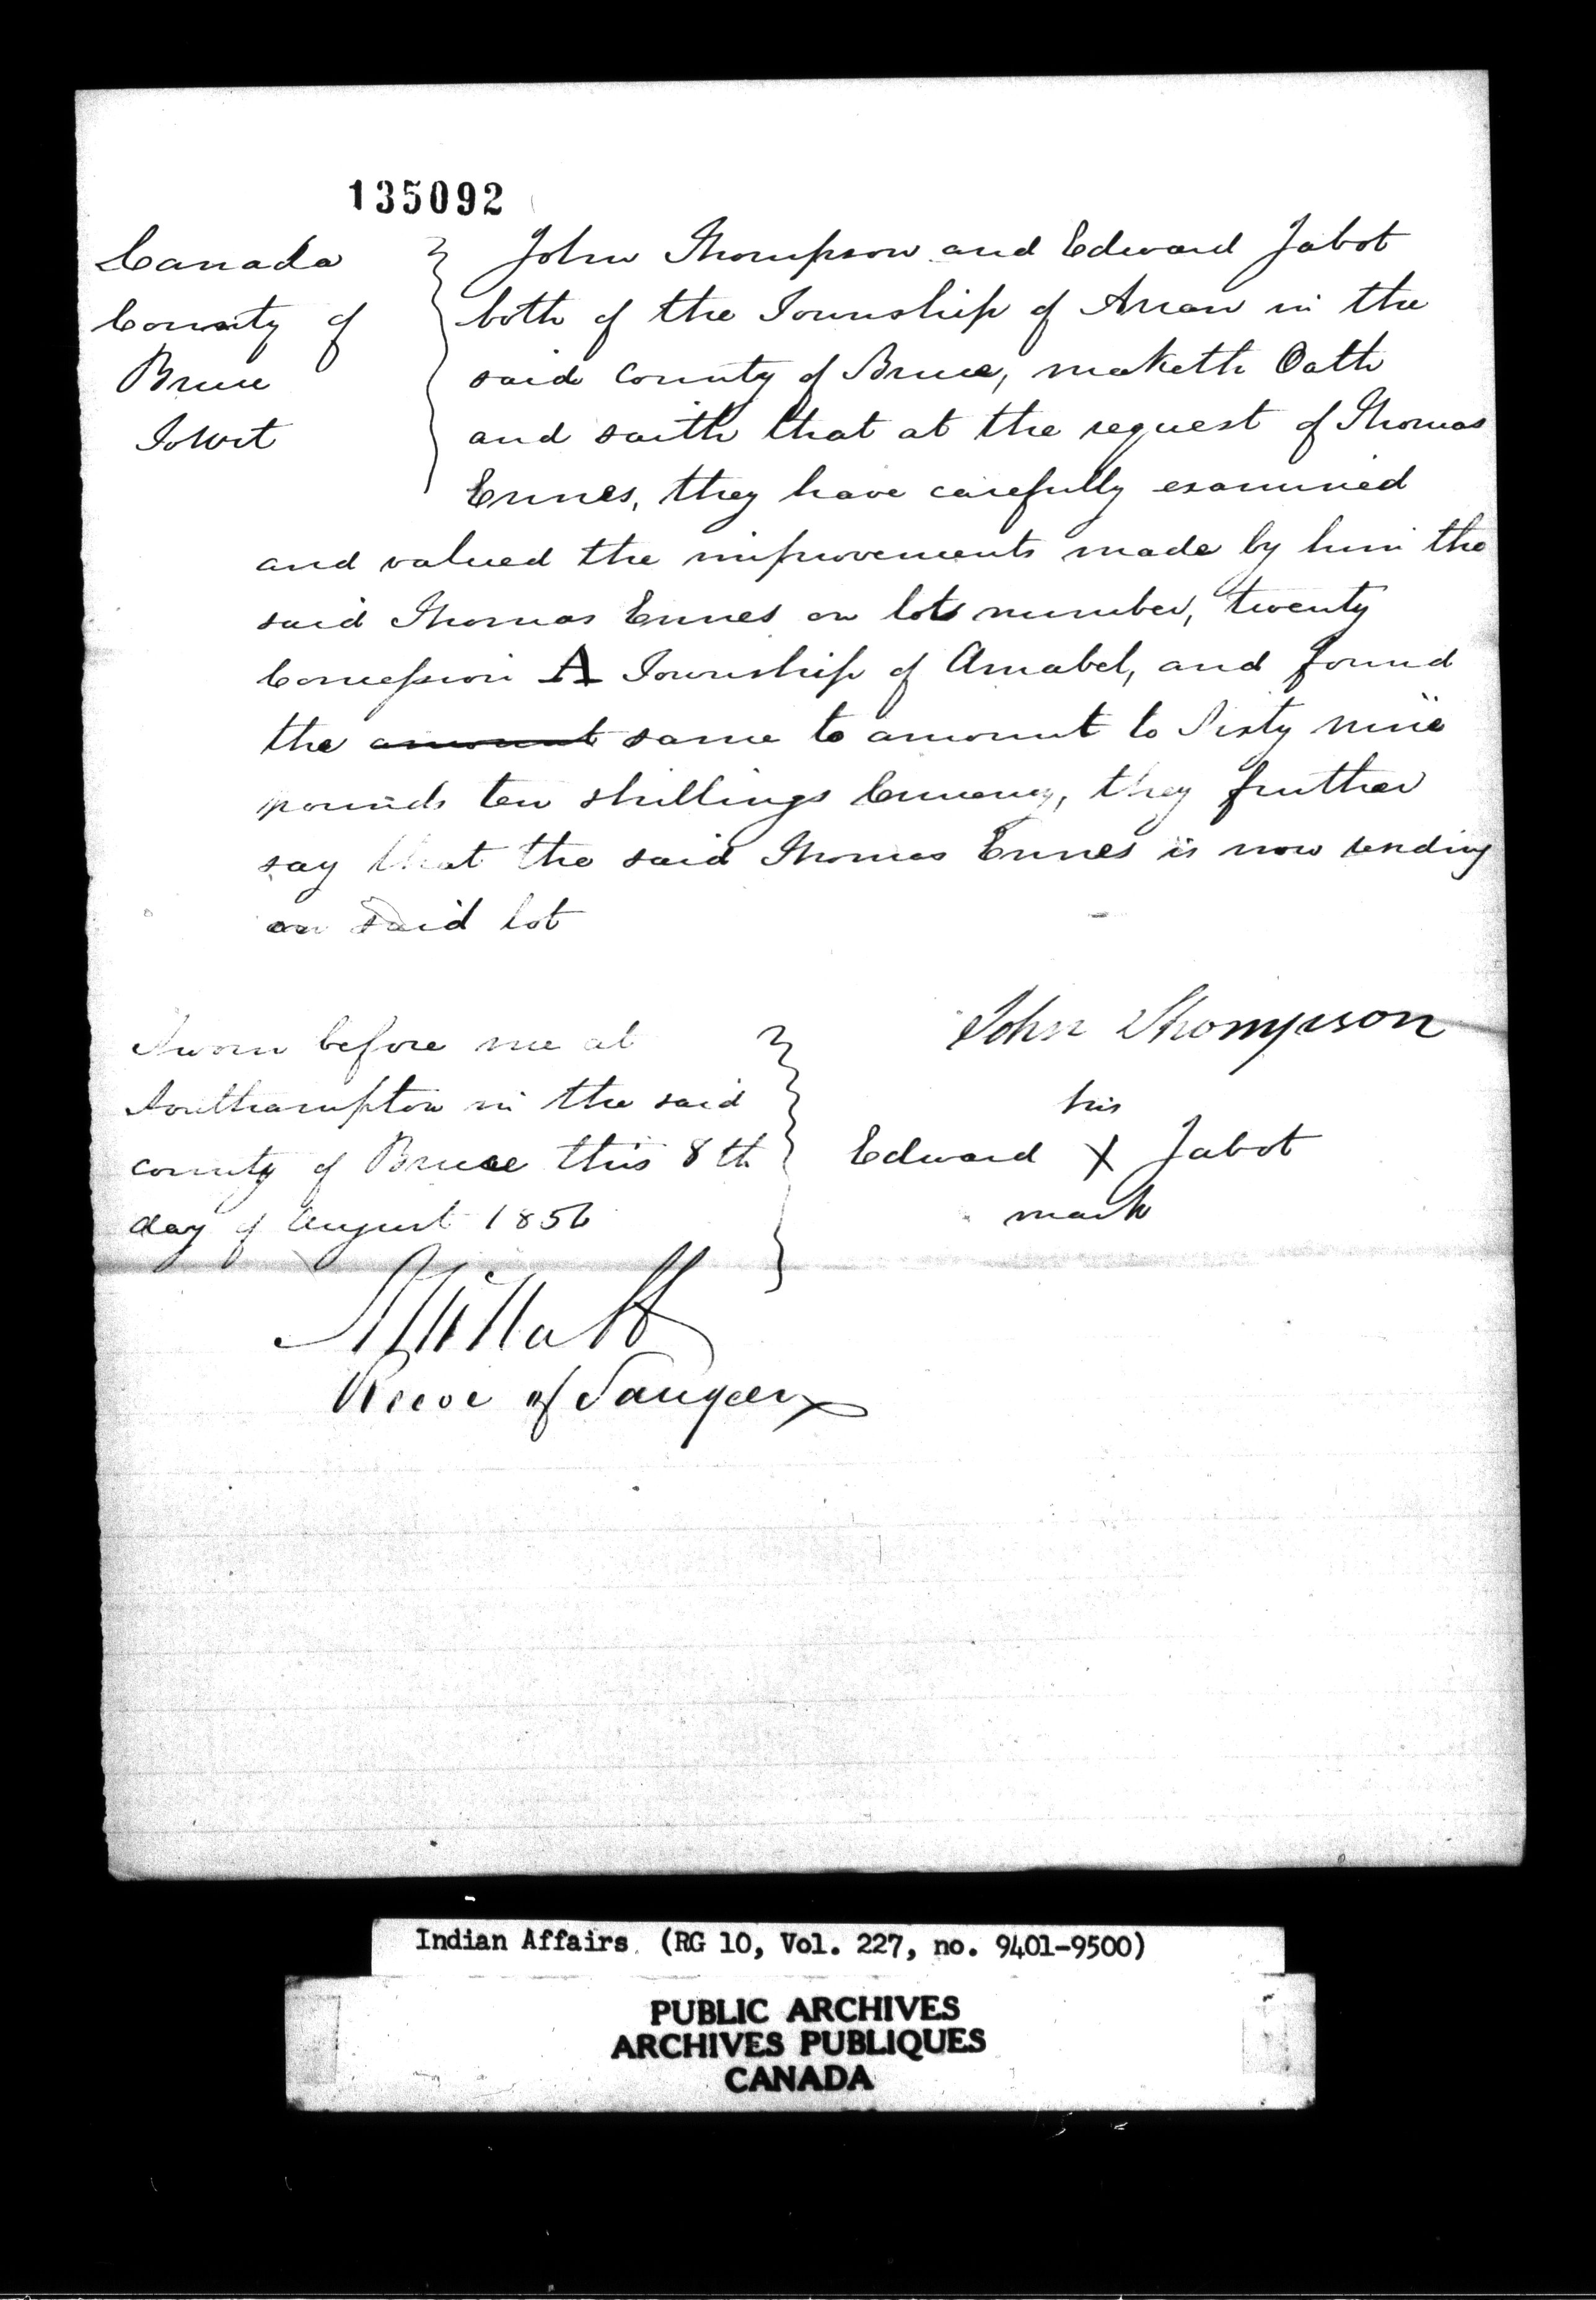 135092
Canada
County of
Bruce
To Wit
John Thompson and Edward Jabot
both of the Township of Arran in the
said County of Bruce, maketh Oath
and saith that at the request of Thomas
Ennes, they have carefully examined
and valued the improvements made by him the
said Thomas Ennes on lots number, twenty
Concession A Township of Amabel, and found
the amount same to amount to Sixty nine
pounds ten shillings Currency, they further
say that the said Thomas Ennes is now residing
on said lot
Sworn before me at
Southampton in the said
County of Bruce this 8th
day of August 1856
John Thompson
his
Edward X Jabot
mark
Reeve of Saugeen
Indian Affairs. (RG 10, Vol. 227, no. 9401-9500)
PUBLIC ARCHIVES
ARCHIVES PUBLIQUES
CANADA